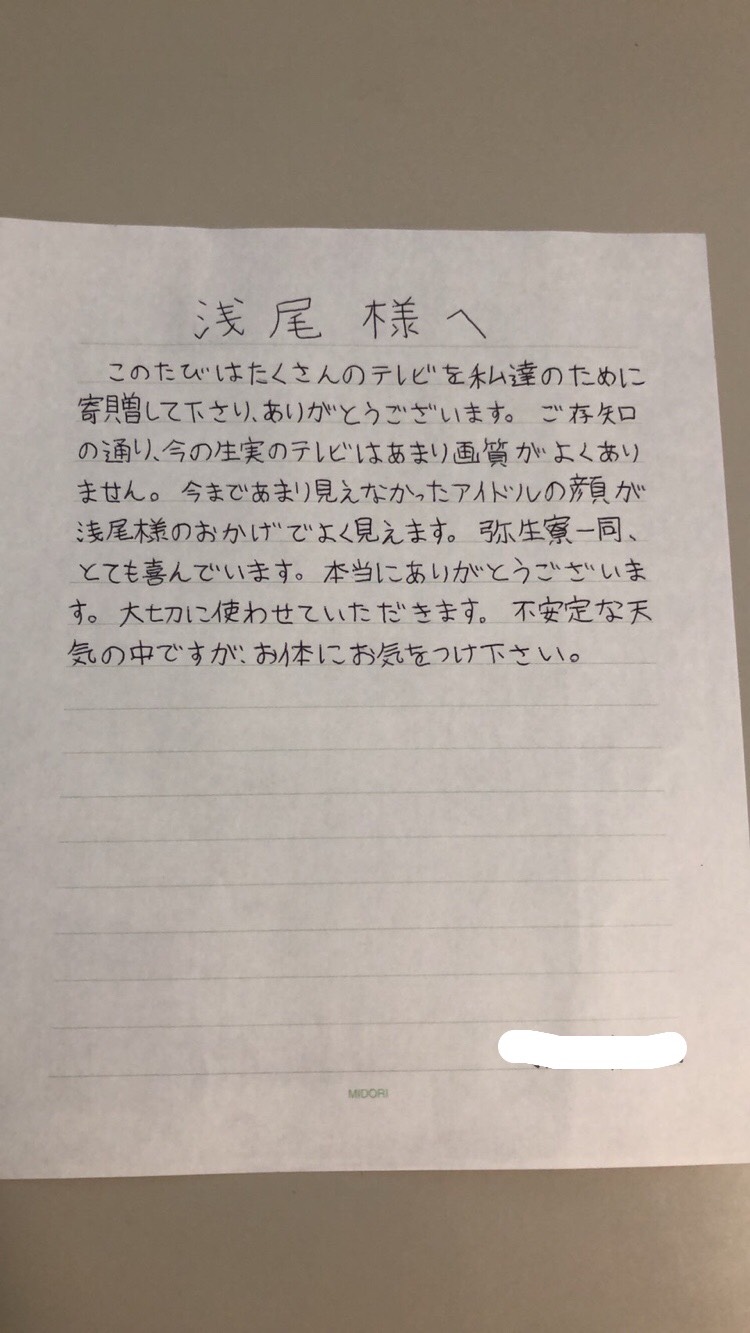 浅尾様へ
このたびはたくさんのテレビを私達のために
寄贈して下さり、ありがとうございます。ご存知
の通り、今の生実のテレビはあまり画質がよくあり
ません。今まであまり見えなかったアイドルの顔が
浅尾様のおかげでよく見えます。弥生寮一同、
とても喜んでいます。本当にありがとうございま
す。大切に使わせていただきます。不安定な天
気の中ですが、お体にお気をつけ下さい。
MIDORI